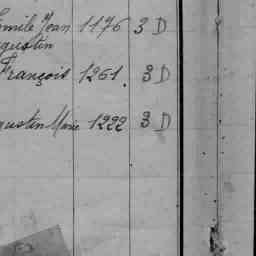 Emile Jean 1176 3 D
Augustin
François 1251. 3 D
Augustin Marie 1222 3 D